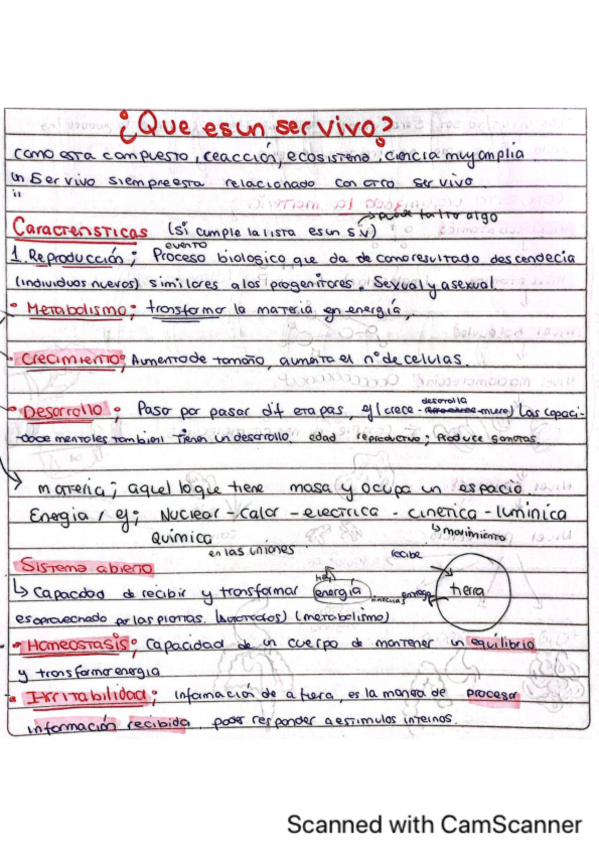 ¿Que es un ser vivo?
como esta compuesto, reacción, ecosistema, ciencia muy amplia
Un Ser vivo siempre esta relacionado con otro ser vivo.
Características (si cumple la lista es un s.v) → puede faltar algo
1. Reproducción; Proceso evento biologico que da de como resultado descendecia
(individuos nuevos) similares a los progenitores. Sexual y asexual.
• Metabolismo; transforma la materia en energía,
• Crecimiento; Aumento de tamaño, aumenta el n° de celulas.
• Desarrollo; Paso por pasar dif etapas, ej (crece - desarrolla - muere) Las capaci-
dades mentales tambien tienen un desarrollo. edad reproductiva; Produce gametos.
materia; aquel lo que tiene masa y ocupa un espacio.
Energia / ej; Nuclear - calor - electrica - cinetica - lumínica
↳ movimiento
Química
en las uniones
Sistema abierto
recibe
↳ Capacidad de recibir y transformar energía
entrega
tierra
es aprovechado por las plantas. (autotrofos) (metabolismo)
• Homeostasis; Capacidad de un cuerpo de mantener un equilibrio
y transformar energia
• Irritabilidad; información de afuera, es la manera de procesar
información recibida. poder responder a estimulos internos.
Scanned with CamScanner